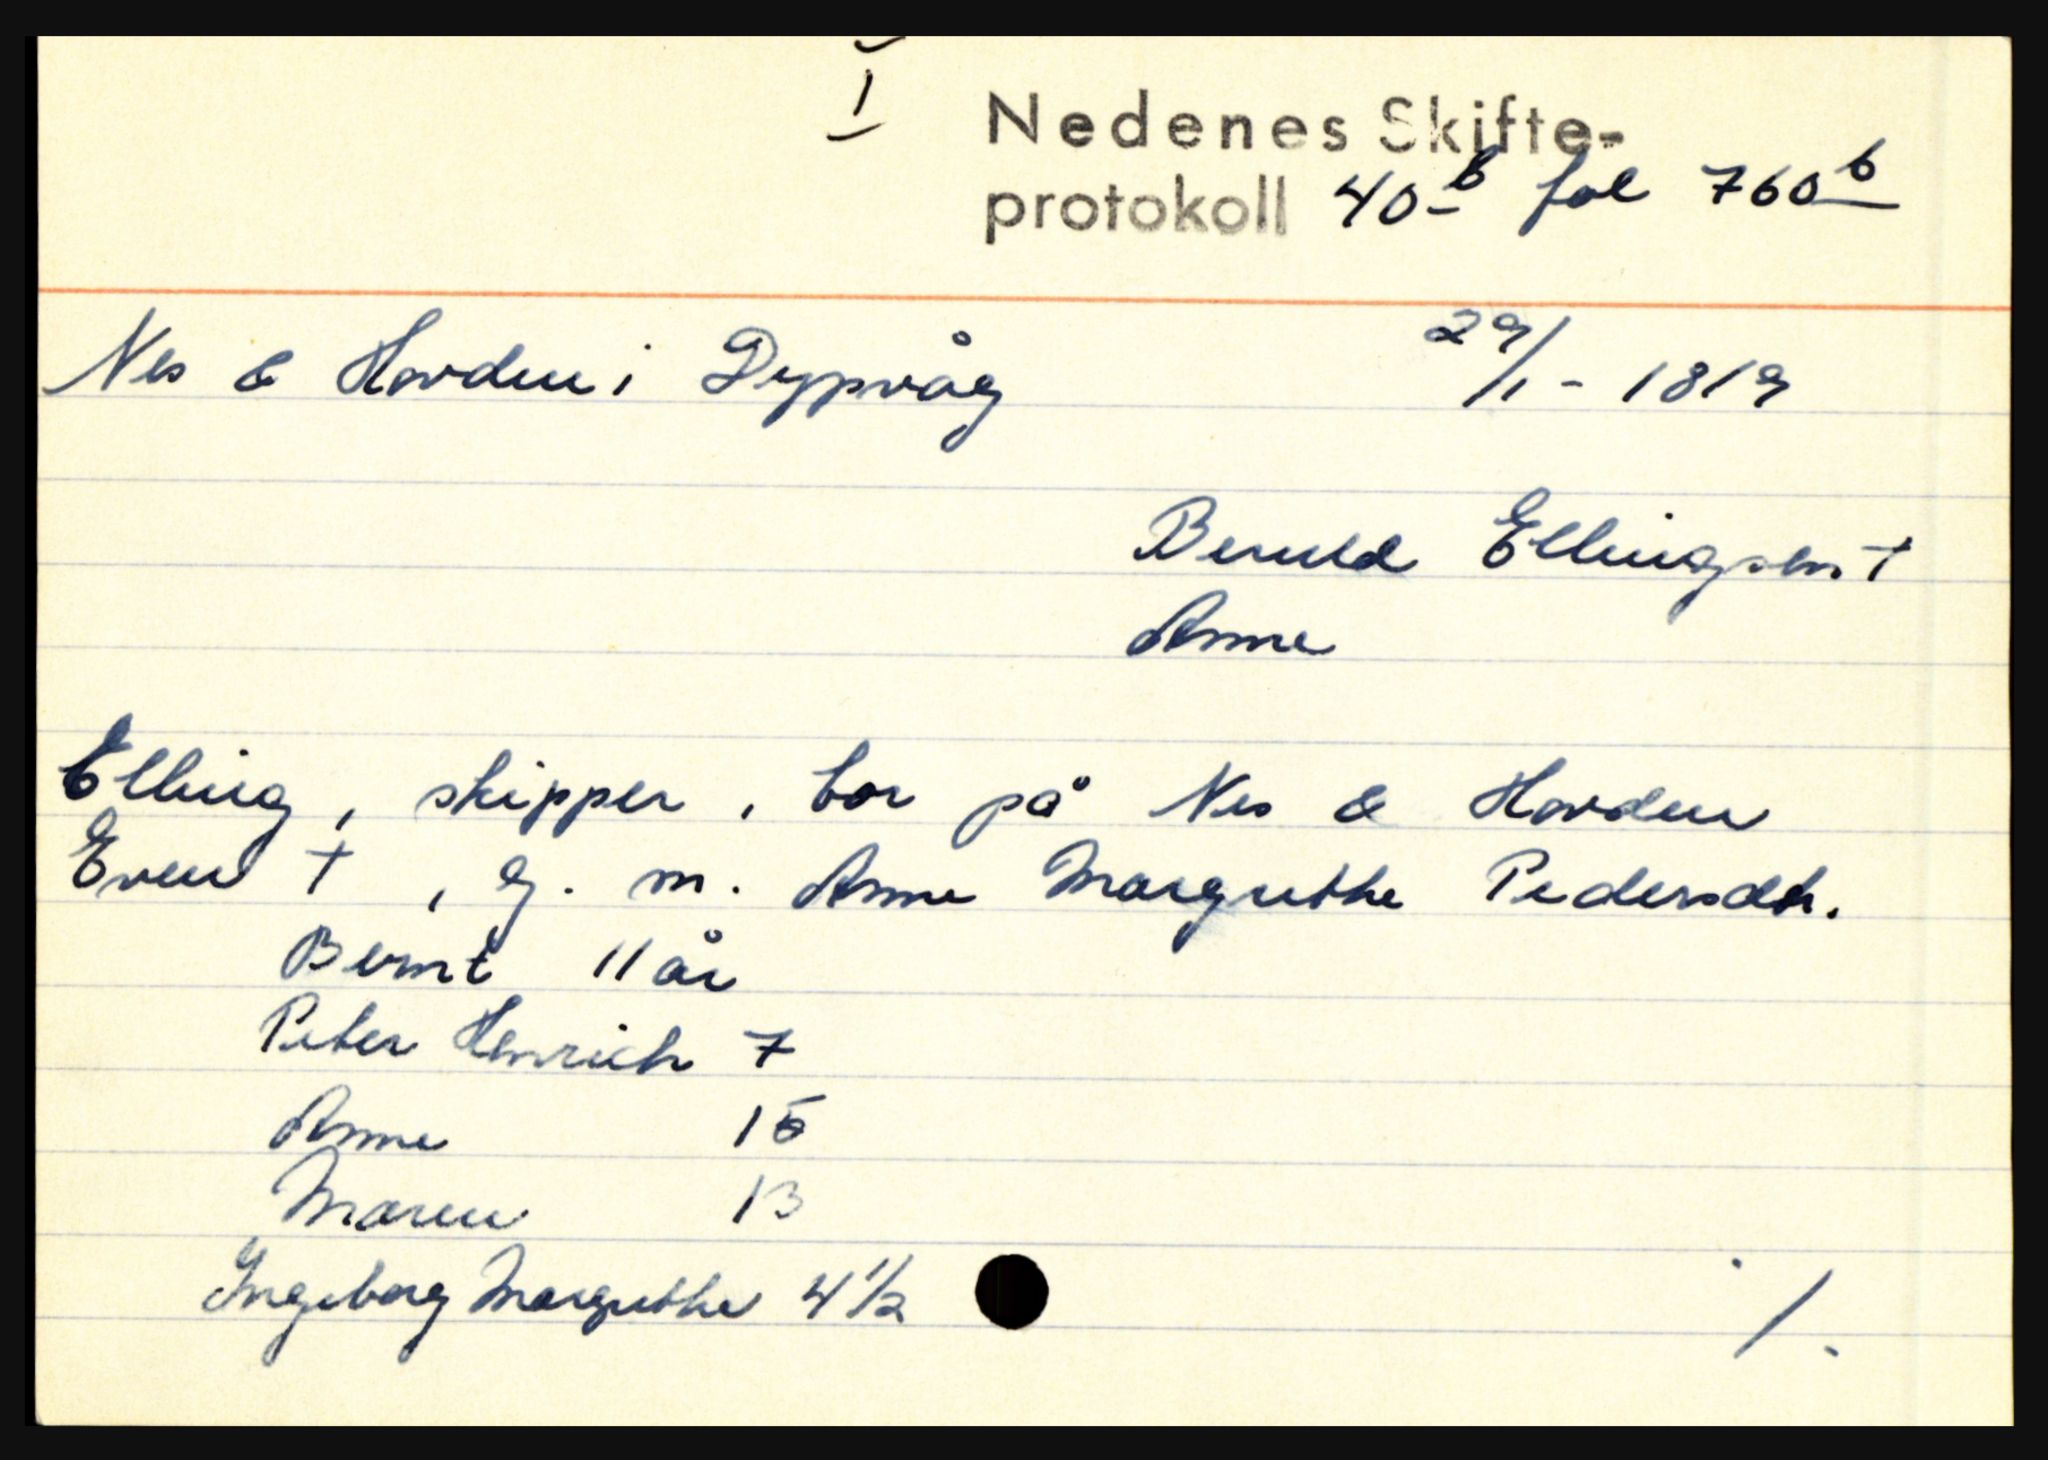 I
Nedenes Skifte-
protokoll 40b fol 760b
Nes & Hovden i Dypvåg 29/1 - 1819
Ellingsen †
Anne
Elling, skipper, bor på Nes & Hovden
Even †, g. m. Anne Margrethe Pedersdtr.
Bernt 11 år
Peter Henrich 7
Anne 15
Maren 13
Ingeborg Margrethe 4 1/2
·/.